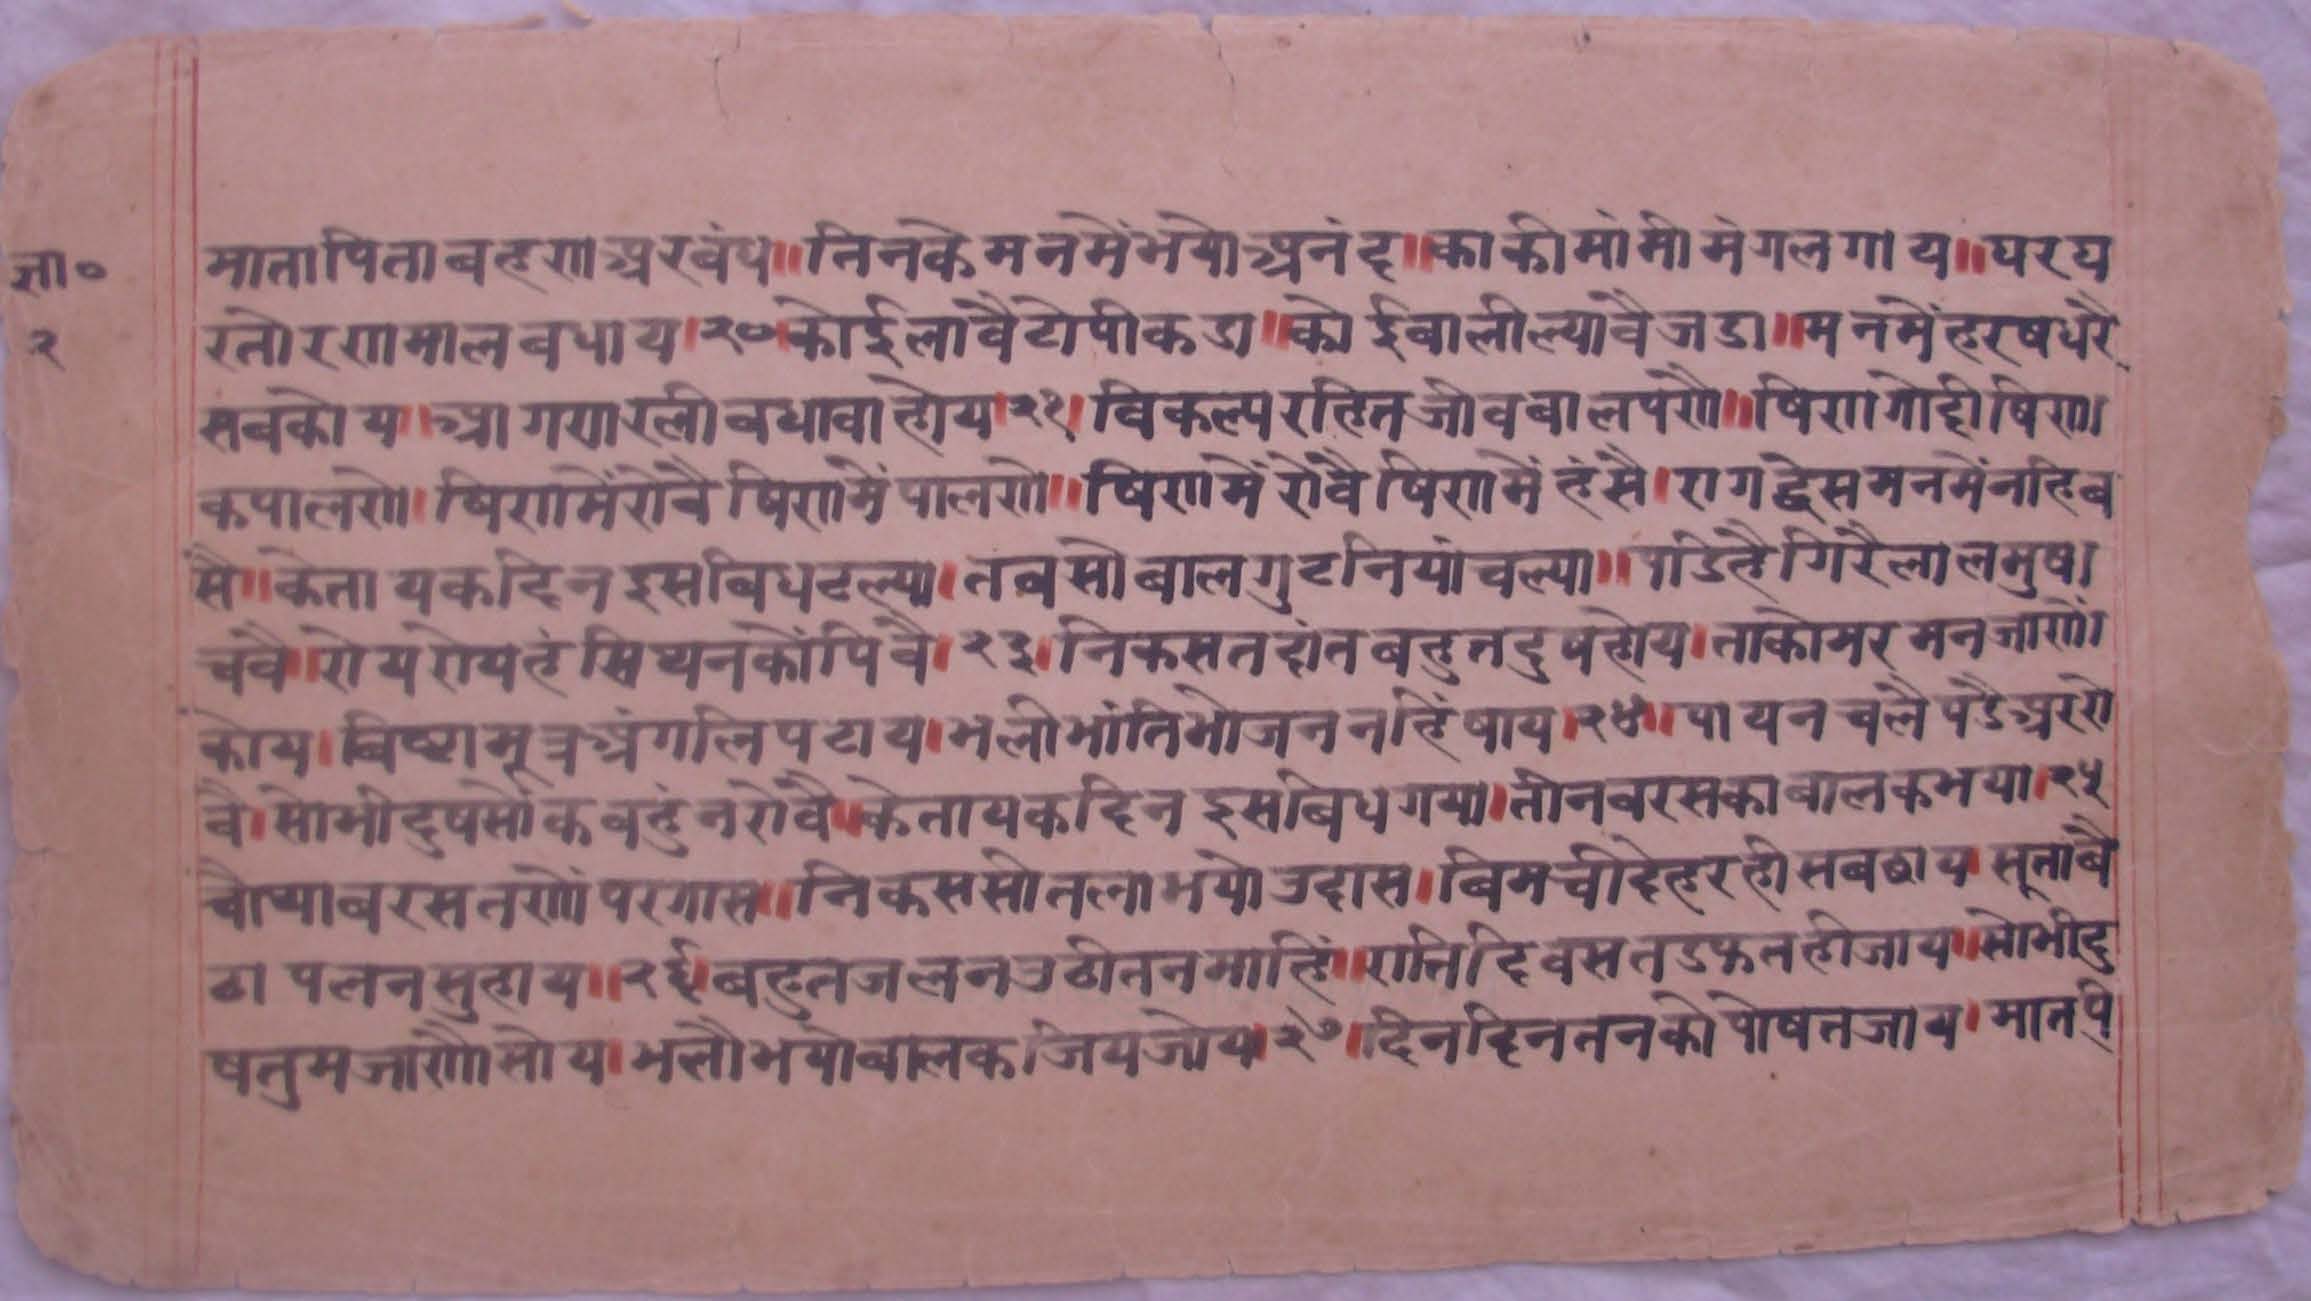 ज्ञा०
मातापिताबहणअरबंध॥तिनकेमनमेंभयोअनंद॥काकीमांमीमंगलगाय॥घरघ
२
रतोरणमालबधाय।२०।कोईलावैटोपीकडा॥कोईबालील्यावैजडा॥मनमेंहरषधरै
सबकोय।आगणरलीबधावाहोय।२१।विकल्परहितजीवबालपणै॥षिणगोदीषिण
कपालणे॥षिणमेंरोवैषिणमेंपालणे॥षिणमेंरोवैषिणमेंहंसै।रागद्वेसमनमेंनहिब
सै॥केतायकदिनइसबिधटल्या।तबसोबालगुटनियांचल्या॥पडिहैगिरैलालमुष
चवै॥रोयरोयहंसिथनकोंपिवै।२३।निकसतदांतबहुतदुषहोय।ताकोमरमनजाणें
कोय।बिष्टामूत्रअंगलिपटाय।भलीभांतिभोजननहिंषाय।२४॥पायनचलैपडैअररो
वै।सोभीदुषसौंकबहुंनरोवै॥केतायकदिनइसबिधगया।तीनबरसकाबालकभया।२५
चौथाबरसतणौंपरगास॥निकससीतलाभयोउदास।बिमचीदेहरहीसबछाय।सूताबै
ठापलनसुहाय॥२६।बहुतजलनउठीतनमाहिं॥रातिदिवसतडफतहीजाय॥सोभीदु
षतुमजाणैसोय।भलौभयोबालकजियजोय।२७।दिनदिनतनकोपोषतजाय।मातपि